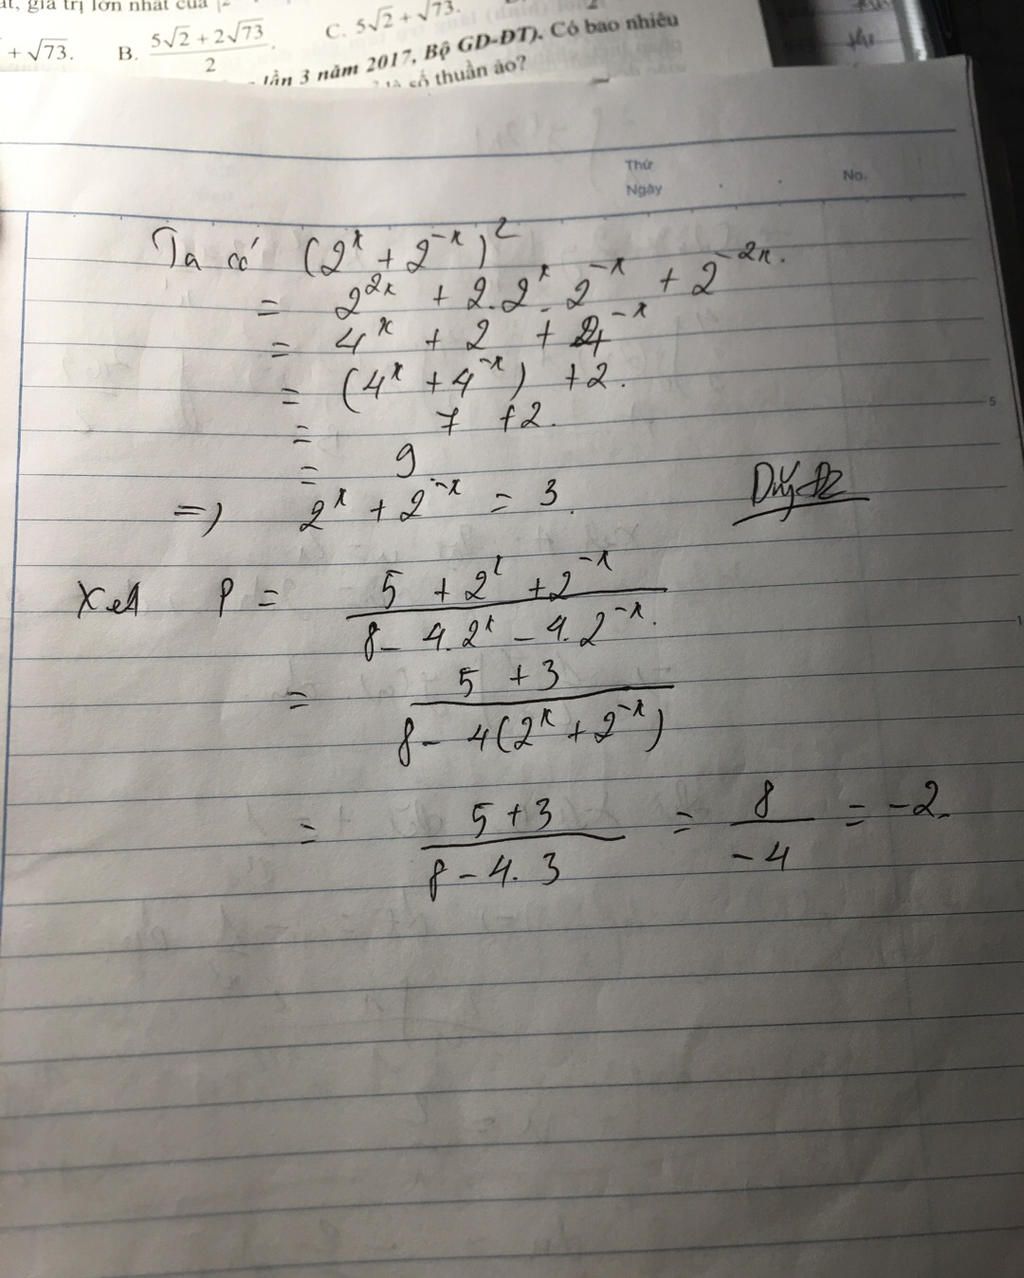 giá trị lớn nhất của
+ √73. B. (5√2 + 2√73)/2. C. 5√2 + √73.
lần 3 năm 2017, Bộ GD-ĐT). Có bao nhiêu
là số thuần ảo?
Thứ
Ngày No.
Ta có (2^x + 2^-x)^2
= 2^2x + 2.2^x. 2^-x + 2^-2x.
= 4^x + 2 + 4^-x
= (4^x + 4^-x) + 2.
= 7 + 2.
= 9
=> 2^x + 2^-x = 3.
Xét P = (5 + 2^x + 2^-x)/(8 - 4.2^x - 4.2^-x.)
= (5 + 3)/(8 - 4(2^x + 2^-x))
= (5 + 3)/(8 - 4. 3) = 8/-4 = -2.
5